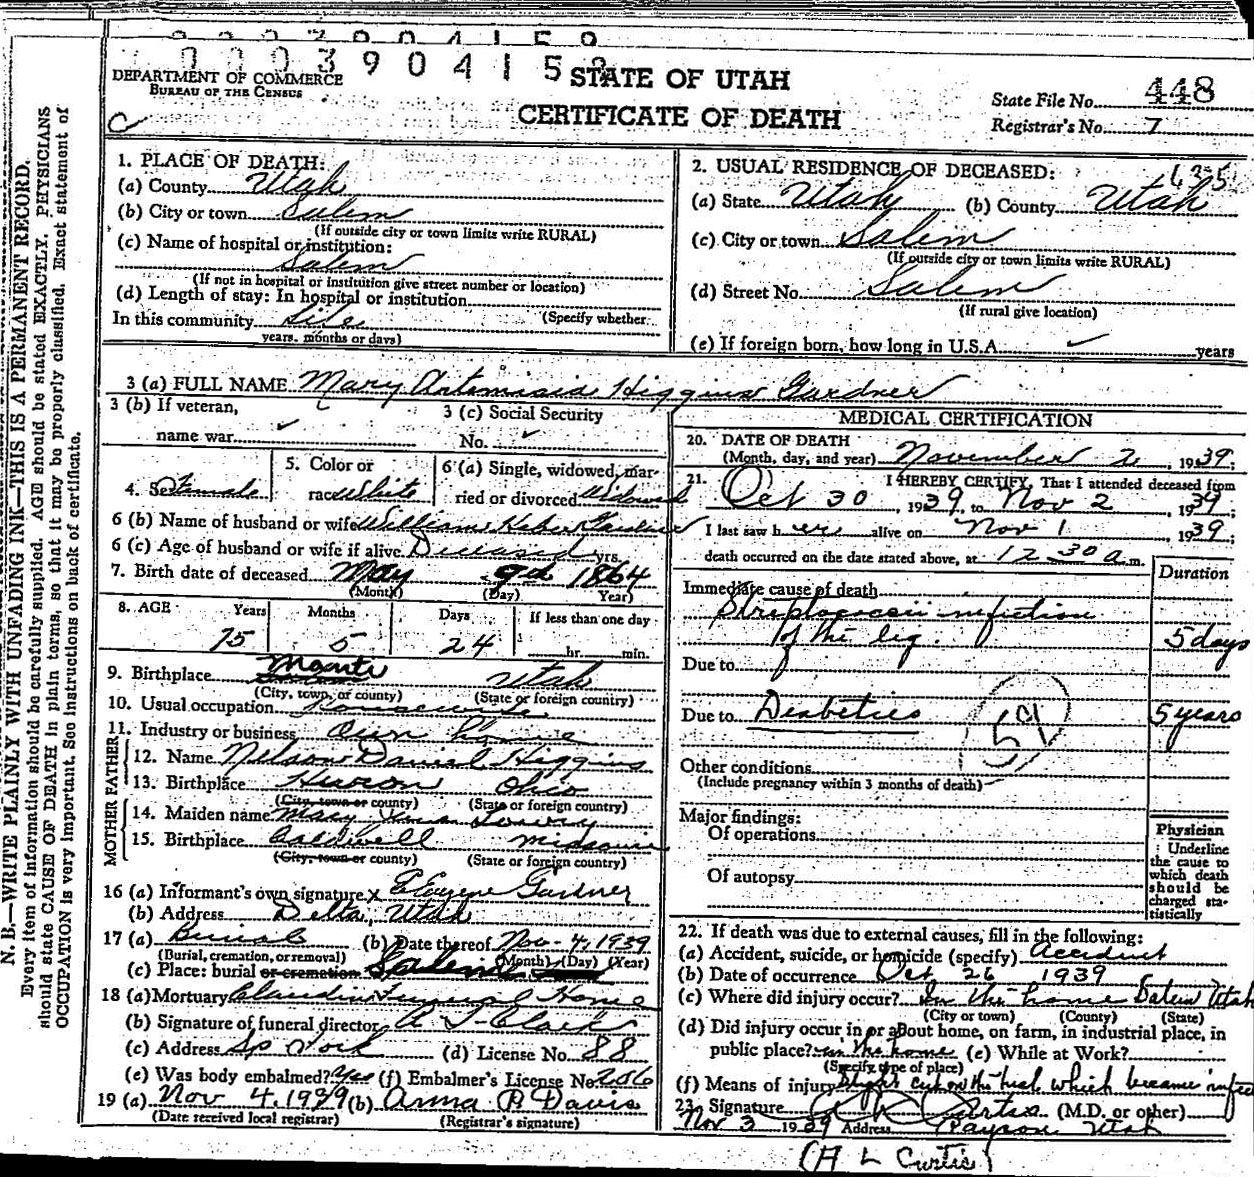 0003904159
DEPARTMENT OF COMMERCE
BUREAU OF THE CENSUS
STATE OF UTAH
CERTIFICATE OF DEATH
State File No. 448
Registrar's No. 7
N. B.—WRITE PLAINLY WITH UNFADING INK—THIS IS A PERMANENT RECORD.
Every item of information should be carefully supplied. AGE should be stated EXACTLY. PHYSICIANS
should state CAUSE OF DEATH in plain terms, so that it may be properly classified. Exact statement of
OCCUPATION is very important. See instructions on back of certificate.
1. PLACE OF DEATH:
(a) County Utah
(b) City or town Salem
(If outside city or town limits write RURAL)
(c) Name of hospital or institution:
Salem
(If not in hospital or institution give street number or location)
(d) Length of stay: In hospital or institution
In this community Life (Specify whether
years. months or days)
2. USUAL RESIDENCE OF DECEASED:
(a) State Utah (b) County Utah
(c) City or town Salem
(If outside city or town limits write RURAL)
(d) Street No. Salem
(If rural give location)
(e) If foreign born, how long in U.S.A. years
3 (a) FULL NAME Mary Artemisia Higgins Gardner
3 (b) If veteran,
name war
3 (c) Social Security
No.
4. Sex Female
5. Color or
race White
6 (a) Single, widowed, mar-
ried or divorced Widowed
6 (b) Name of husband or wife William Heber Gardner
6 (c) Age of husband or wife if alive Deceased yrs.
7. Birth date of deceased May 9th 1864
(Month) (Day) Year)
8. AGE Years Months Days If less than one day
75 5 24 hr. min.
9. Birthplace Utah
(City, town, or county) (State or foreign country)
10. Usual occupation Housewife
11. Industry or business Own home
FATHER
12. Name Nelson Daniel Higgins
13. Birthplace Huron Ohio
(City, town or county) (State or foreign country)
MOTHER
14. Maiden name Mary Lowry
15. Birthplace Caldwell Missouri
(City, town or county) (State or foreign country)
16 (a) Informant's own signature x Gardner
(b) Address Delta, Utah
17 (a) Burial (b) Date thereof Nov - 4, 1939
(Burial, cremation, or removal) (Month) (Day) (Year)
(c) Place: burial or cremation Salem
18 (a) Mortuary Claudin Funeral Home
(b) Signature of funeral director
(c) Address Sp Fork (d) License No. 88
(e) Was body embalmed? Yes (f) Embalmer's License No. 206
19 (a) Nov 4, 1939 (b) Anna B Davis
(Date received local registrar) (Registrar's signature)
MEDICAL CERTIFICATION
20. DATE OF DEATH
(Month, day, and year) November 2, 1939;
21. I HEREBY CERTIFY, That I attended deceased from
Oct 30, 1939, to Nov 2, 1939;
I last saw her alive on Nov 1 1939;
death occurred on the date stated above, at 12 30 a m.
Duration
Immediate cause of death
Streptococci infection
of the leg. 5 days
Due to
Due to Diabetics 5 years
59
Other conditions
(Include pregnancy within 3 months of death)
Major findings:
Of operations
Of autopsy
Physician
Underline
the cause to
which death
should be
charged sta-
tistically
22. If death was due to external causes, fill in the following:
(a) Accident, suicide, or homicide (specify) Accident
(b) Date of occurrence Oct 26 1939
(c) Where did injury occur? In the home Salem Utah
(City or town) (County) (State)
(d) Did injury occur in or about home, on farm, in industrial place, in
public place? in the home (e) While at Work?
(Specify type of place)
(f) Means of injury Slight cut on the heel which became infec
23. Signature Curtis (M.D. or other)
Nov 3 1939 Address Payson Utah
(A L Curtis)